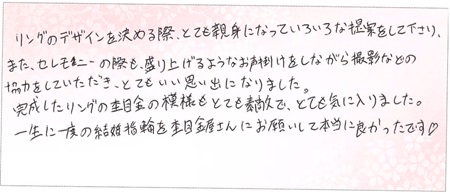 リングのデザインを決める際、とても親身になっていろいろな提案をして下さり、
また、セレモニーの際も、盛り上げるようなお声掛けをしながら撮影などの
協力をしていただき、とてもいい思い出になりました。
完成したリングの杢目金の模様もとても素敵で、とても気に入りました。
一生に一度の結婚指輪を杢目金屋さんにお願いして本当に良かったです♡